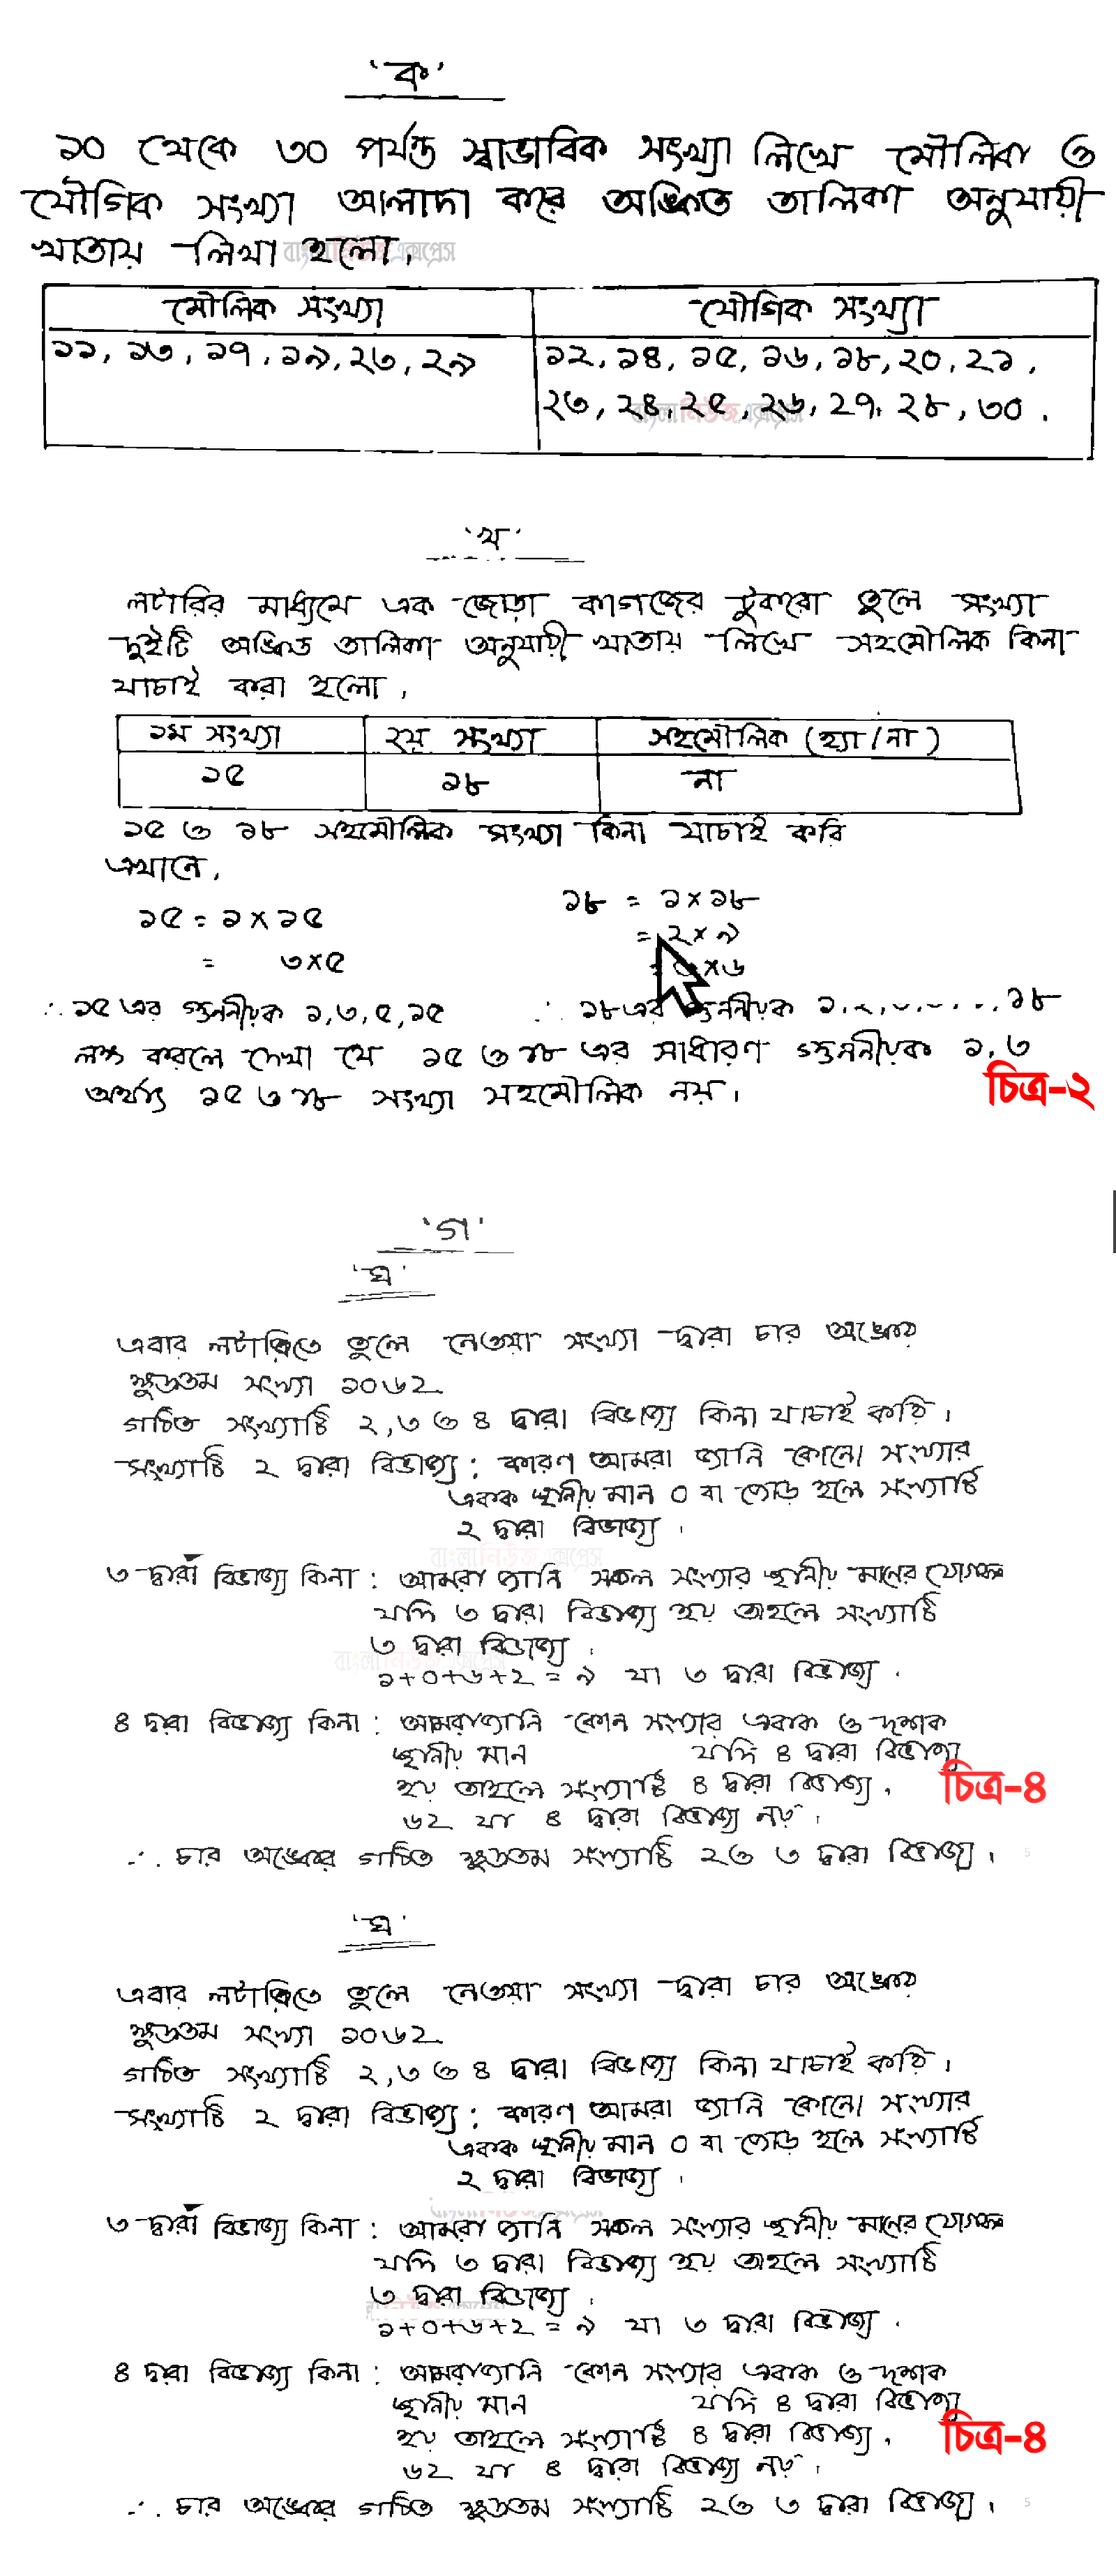 'ক'
১০ থেকে ৩০ পর্যন্ত স্বাভাবিক সংখ্যা লিখে মৌলিক ও
যৌগিক সংখ্যা আলাদা করে অঙ্কিত তালিকা অনুযায়ী
খাতায় লিখা হলো।
বাংলা নিউজ এক্সপ্রেস
মৌলিক সংখ্যা যৌগিক সংখ্যা
১১, ১৩, ১৭, ১৯, ২৩, ২৯ ১২, ১৪, ১৫, ১৬, ১৮, ২০, ২১,
২৩, ২৪, ২৫, ২৬, ২৭, ২৮, ৩০.
বাংলা নিউজ এক্সপ্রেস
'খ'
লটারির মাধ্যমে এক জোড়া কাগজের টুকরো তুলে সংখ্যা
দুইটি অঙ্কিত তালিকা অনুযায়ী খাতায় লিখে সহমৌলিক কিনা
যাচাই করা হলো,
১ম সংখ্যা ২য় সংখ্যা সহমৌলিক (হ্যা/না)
১৫ ১৮ না
১৫ ও ১৮ সহমৌলিক সংখ্যা কিনা যাচাই করি
এখানে,
১৫ = ১ x ১৫ ১৮ = ১ x ১৮
= ৩x৫ = ২x ৯
= ৩x৬
∴ ১৫ এর গুননীয়ক ১,৩,৫,১৫ ∴ ১৮ এর গুননীয়ক ১,২,৩, ১৮
লক্ষ করলে দেখা যে ১৫ ও ১৮ এর সাধারণ গুননীয়ক ১,৩
অর্থাৎ ১৫ ও ১৮ সংখ্যা সহমৌলিক নয়।
চিত্র-২
'গ'
'ঘ'
এবার লটারিতে তুলে নেওয়া সংখ্যা দ্বারা চার অঙ্কের
ক্ষুদ্রতম সংখ্যা ১০৬২
গঠিত সংখ্যাটি ২,৩ ও ৪ দ্বারা বিভাজ্য কিনা যাচাই করি।
সংখ্যাটি ২ দ্বারা বিভাজ্য; কারণ আমরা জানি কোনো সংখ্যার
একক স্থানীয় মান ০ বা জোড় হলে সংখ্যাটি
২ দ্বারা বিভাজ্য।
বাংলা নিউজ এক্সপ্রেস
৩ দ্বারা বিভাজ্য কিনা: আমরা জানি সকল সংখ্যার স্থানীয় মানের যোগফল
যদি ৩ দ্বারা বিভাজ্য হয় তাহলে সংখ্যাটি
৩ দ্বারা বিভাজ্য।
বাংলা নিউজ এক্সপ্রেস
১+০+৬+২ = ৯ যা ৩ দ্বারা বিভাজ্য।
৪ দ্বারা বিভাজ্য কিনা: আমরা জানি কোন সংখ্যার একক ও দশক
স্থানীয় মান যদি ৪ দ্বারা বিভাজ্য
হয় তাহলে সংখ্যাটি ৪ দ্বারা বিভাজ্য।
চিত্র-৪
৬২ যা ৪ দ্বারা বিভাজ্য নয়।
∴ চার অঙ্কের গঠিত ক্ষুদ্রতম সংখ্যাটি ২ও ৩ দ্বারা বিভাজ্য।
5
'ঘ'
এবার লটারিতে তুলে নেওয়া সংখ্যা দ্বারা চার অঙ্কের
ক্ষুদ্রতম সংখ্যা ১০৬২
গঠিত সংখ্যাটি ২,৩ ও ৪ দ্বারা বিভাজ্য কিনা যাচাই করি।
সংখ্যাটি ২ দ্বারা বিভাজ্য; কারণ আমরা জানি কোনো সংখ্যার
একক স্থানীয় মান ০ বা জোড় হলে সংখ্যাটি
২ দ্বারা বিভাজ্য।
৩ দ্বারা বিভাজ্য কিনা: আমরা জানি সকল সংখ্যার স্থানীয় মানের যোগফল
যদি ৩ দ্বারা বিভাজ্য হয় তাহলে সংখ্যাটি
৩ দ্বারা বিভাজ্য।
১+০+৬+২ = ৯ যা ৩ দ্বারা বিভাজ্য।
৪ দ্বারা বিভাজ্য কিনা: আমরা জানি কোন সংখ্যার একক ও দশক
স্থানীয় মান যদি ৪ দ্বারা বিভাজ্য
হয় তাহলে সংখ্যাটি ৪ দ্বারা বিভাজ্য।
চিত্র-৪
৬২ যা ৪ দ্বারা বিভাজ্য নয়।
∴ চার অঙ্কের গঠিত ক্ষুদ্রতম সংখ্যাটি ২ও ৩ দ্বারা বিভাজ্য।
5